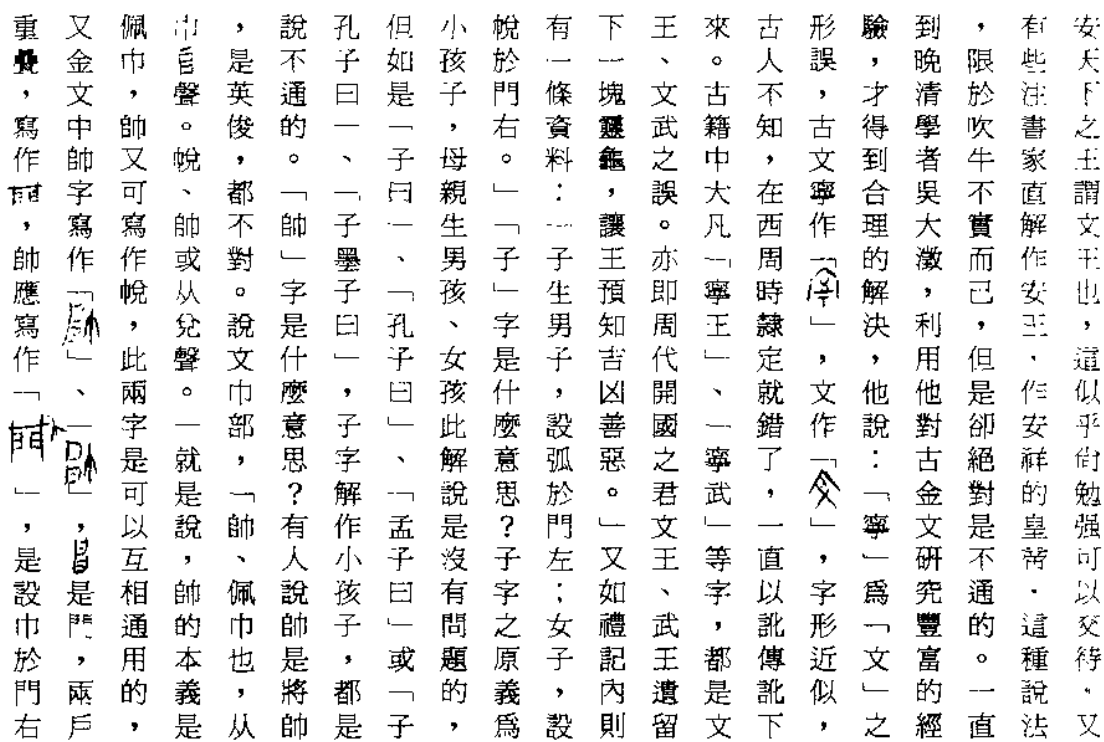 安天下之王謂文王也，這似乎尙勉强可以交待。又
有些注書家直解作安王、作安祥的皇帝。這種說法
，限於吹牛不實而已，但是卻絕對是不通的。一直
到晚清學者吳大澂，利用他對古金文研究豐富的經
驗，才得到合理的解決，他說：「寧」爲「文」之
形誤，古文寧作「」，文作「」，字形近似，
古人不知，在西周時隸定就錯了，一直以訛傳訛下
來。古籍中大凡「寧王」、「寧武」等字，都是文
王、文武之誤。亦即周代開國之君文王、武王遺留
下一塊靈龜，讓王預知吉凶善惡。」又如禮記內則
有一條資料：「子生男子，設弧於門左；女子，設
帨於門右。」「子」字是什麼意思？子字之原義爲
小孩子，母親生男孩、女孩此解說是沒有問題的，
但如是「子曰」、「孔子曰」、「孟子曰」或「子
孔子曰」、「子墨子曰」，子字解作小孩子，都是
說不通的。「帥」字是什麼意思？有人說帥是將帥
，是英俊，都不對。說文巾部，「帥、佩巾也，从
巾𠂤聲。帨、帥或从兌聲。」就是說，帥的本義是
佩巾，帥又可寫作帨，此兩字是可以互相通用的，
又金文中帥字寫作「」、「」，是門，兩戶
重疊，寫作，帥應寫作「」，是設巾於門右